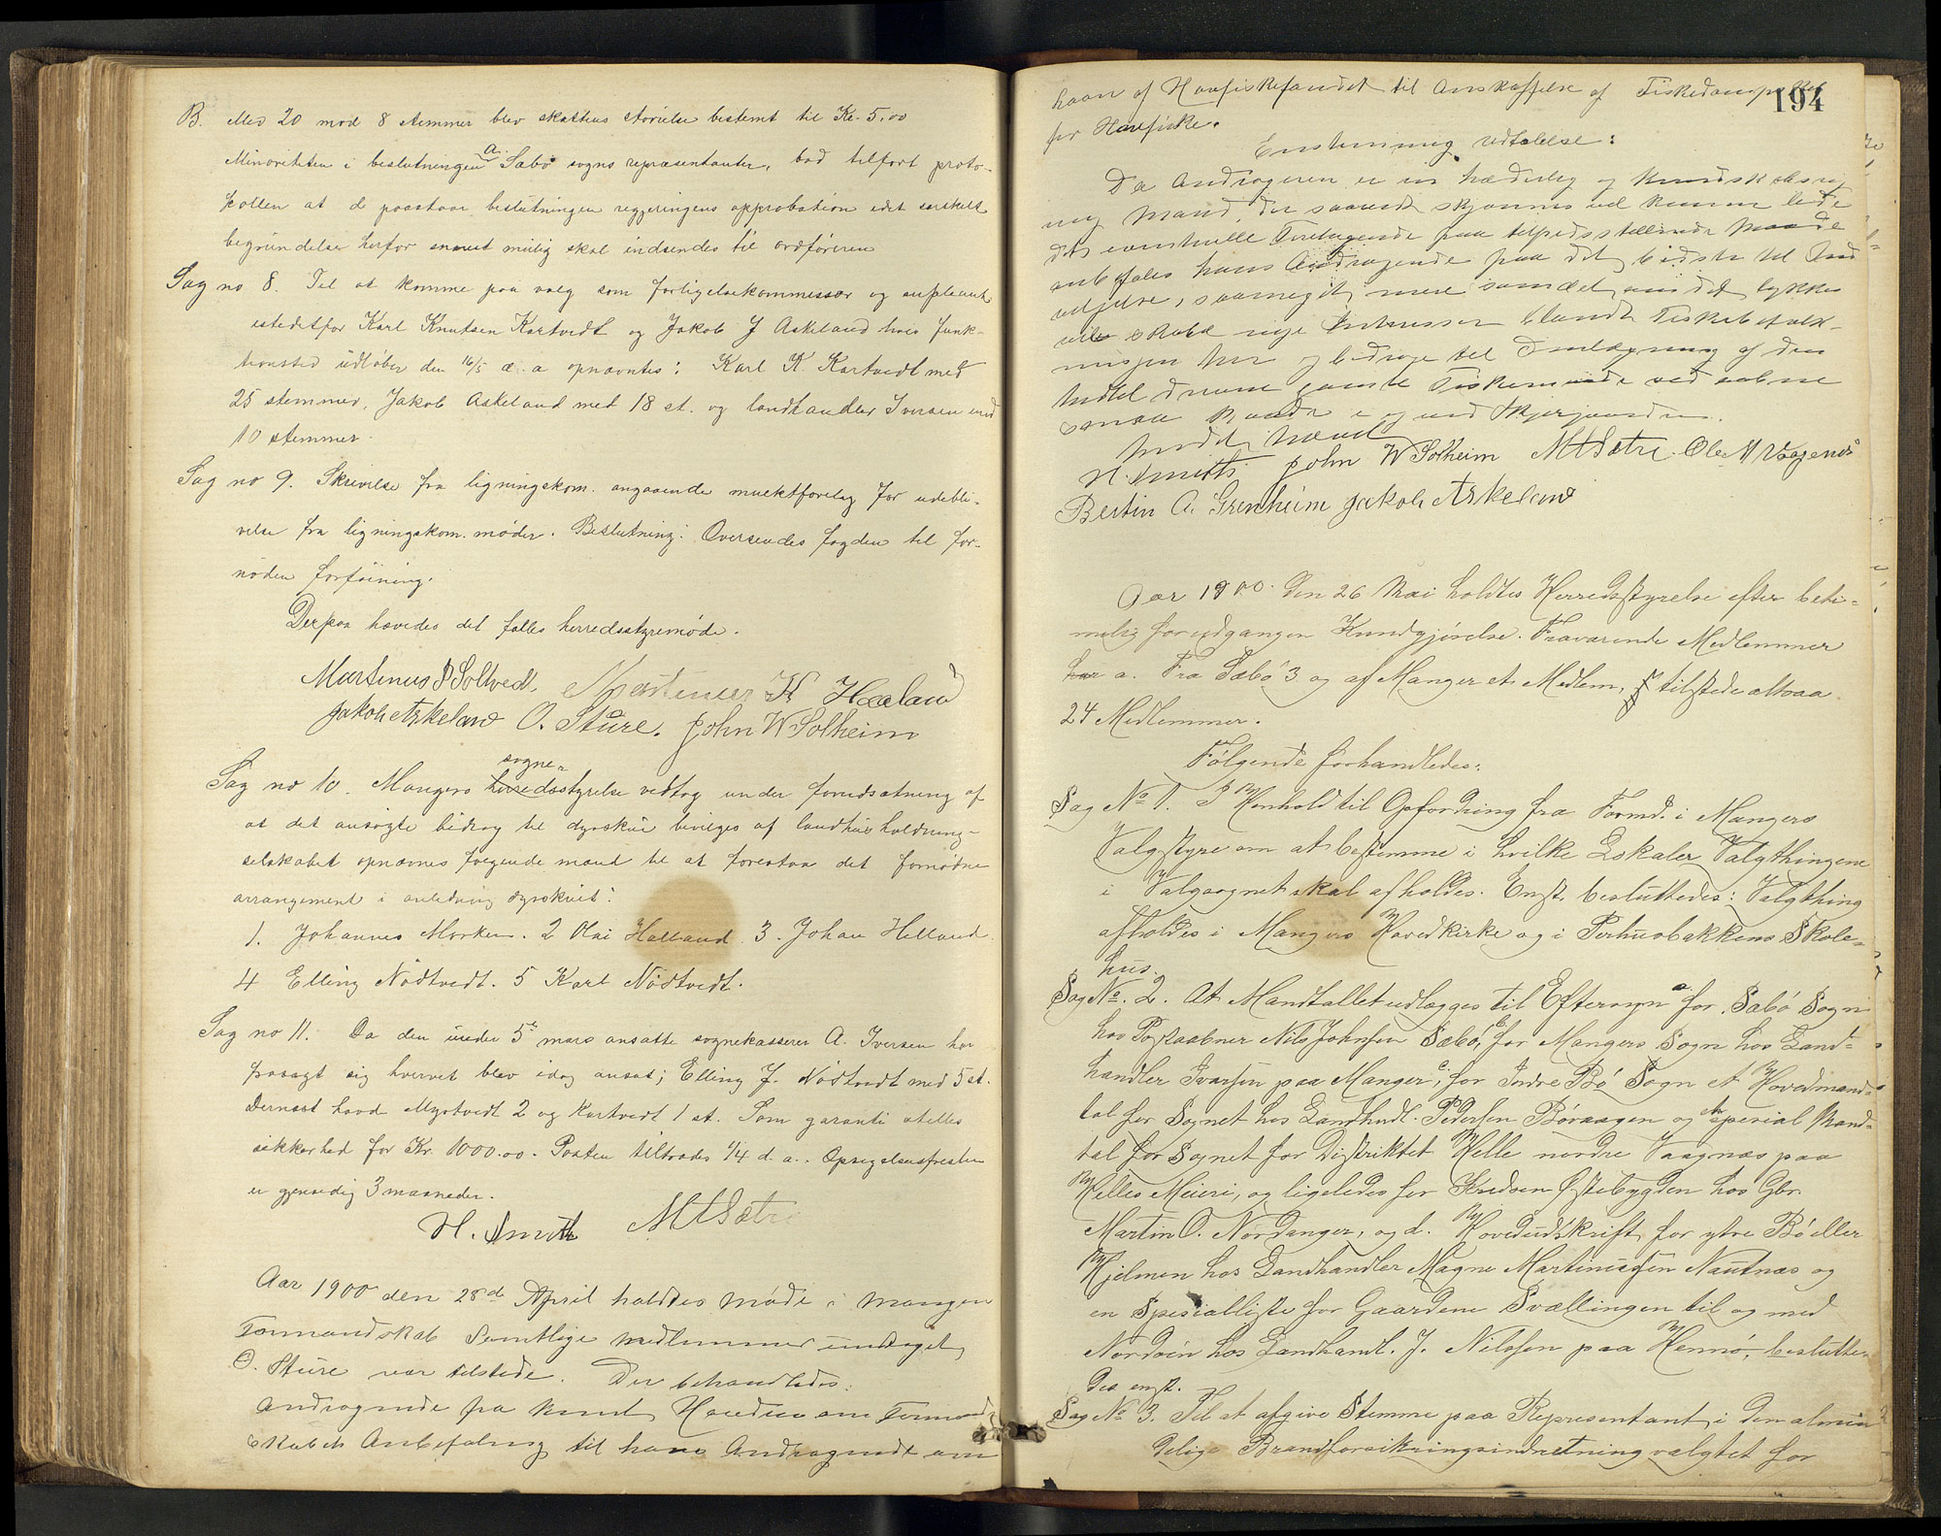 B. Med 20 mod 8 stemmer blev skattens störrelse bestemt til Kr. 5,00
Minoriteten i beslutningen a. Sæbö sogns repræsentanter, bad tilført proto-
kollen at de paastaar beslutningen regjeringens approbation idet særskilt
begrundelse herfor snarest mulig skal indsendes til ordføreren
Sag no 8. Til at komme paa valg som forligelseskommissær og suppleant
istedetfor Karl Knutsen Kartvedt og Jakob J Askeland hvis funk-
tionstid udlöber den 16/5 d. a opnævntes: Karl K. Kartvedt med
25 stemmer, Jakob Askeland med 18 st. og landhandler Iversen med
10 stemmer.
Sag no 9. Skrivelse fra ligningskom. angaaende mulktforelæg for udebli-
velse fra ligningskom. møder. Beslutning: Oversendes fogden til for-
nöden forföining.
Derpaa hævedes det fælles herredsstyremöde.
Martinus P Soltved. Martinus K Haaland
Jakob Askeland O. Sture. John W Solheim
sogne-
Sag no 10. Mangers herredsstyrelse vedtog under forudsætning af
at det ansøgte bidrag til dyrskue bevilges af landhusholdning-
selskabet opnævnes følgende mænd til at forestaa det fornödne
arrangement i anledning dyrskuet:
1. Johannes Morken. 2 Olai Halland. 3. Johan Helland
4 Elling Nödtvedt. 5 Karl Nödtvedt.
Sag no 11. Da den under 5te mars ansatte sognekasserer A. Iversen har
frasagt sig hvervet blev idag ansat; Elling J. Nödtvedt med 5 st.
Dernæst havd Myrtvedt 2 og Kartvedt 1 st. Som garanti stilles
sikkerhed for Kr. 1000.00. Posten tiltrædes 1/4 d. a.. Opsigelsesfristen
er gjensidig 3 maaneder.
H. Smith M H Sætre
Aar 1900 den 28de April holdtes Møde i Manger
Formandskab Samtlige medlemmer undtaget
O. Sture var tilstede. Der behandledes:
Andragende fra Knut om Formand-
skabets Anbefaling til hans Andragende om
194
Laan af Havfiskefondet til Anskaffelse af Fiskedampskib
for Havfiske.
Enstemmig udtalelse:
Da Andrageren er en hæderlig og kundskabsrig
ung Mand, der saavidt skjønnes vil kunne lede
det eventuelle Foretagende paa tilfredsstillende Maade
anbefales hans Andragende paa det bedste til Ind-
vilgelse, saameget mere som det, om det lykkes
vil skabe nye Interesser blandt Fiskebefolk-
ningen her og bidrage til Omlægning af den
hidtil drevne gamle Fiskemaade ved aabne
smaa Baade i og ved Skjærgaarden.
Mødet hævet
H. Smith John W Solheim M H Sætre. Ole M Vaagenes
Bertin A. Grenheim Jakob Askeland
Aar 1900. den 26 Mai holdtes Herredsstyrelse efter beti-
melig forudgangen Kundgjörelse. Fraværende Medlemmer
har a. Fra Sæbö 3 og af Manger et Medlem, tilstede altsaa
24 Medlemmer.
Følgende forhandledes:
Sag No 1. I Henhold til Opfordring fra Formd. i Mangers
Valgstyre om at bestemme i hvilke Lokaler Valgthingene
i Valgsognet skal afholdes. Enst. besluttedes: Valgthing
afholdes i Mangers Hovedkirke og i Perhusbakkens Skole-
hus.
Sag No. 2. At Mandtallet udlægges til Eftersyn a for Sæbö Sogn
hos Postaabner Nils Johnsen Sæbö, b, for Mangers Sogn hos Land-
handler Ivarsen paa Manger, c, for Indre Bö Sogn et Hovedmand-
tal for Sognet hos Landhndl. Pedersen Böraagen og et spesial Mand-
tal for Sognet for Distriktet Helle nordre Vaagnæs paa
Helles Meieri, og ligeledes for Kredsen Östebygden hos Gbr.
Martin O. Nordanger, og d. Hovedudskrift for ytre Bö eller
Hjelmen hos Landhandler Magne Martinussen Nautnæs og
en Spesialliste for Gaardene Svællingen til og med
Nordöen hos Landhandl. J. Nilssen paa Hernö, beslutte-
des enst.
Sag No 3. Til at afgive Stemme paa Representant i den almin-
delige Brandforsikringsindretning valgtet for